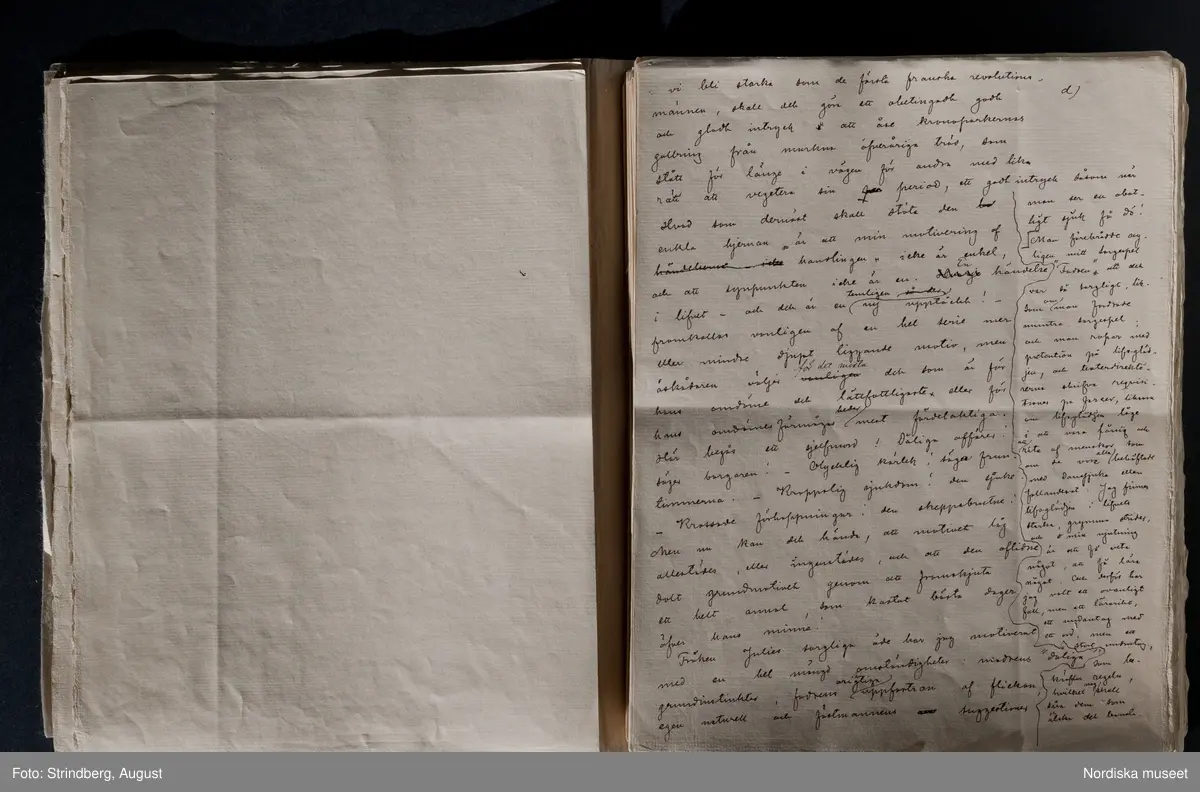 vi bli starka som de första franska revolutions-
männen, skall det göra ett obetingadt godt
och gladt intryck att åse kronoparkernas
gallring från murkna öfveråriga träd, som
stått för länge i vägen för andra med lika
rätt att vegetera sin period, ett godt intryck såsom när
d)
Hvad som dernäst skall stöta den
enkla hjernan är att min motivering af
händelserna icke handlingen icke är enkel,
och att synpunkten icke är en. En händelse
i lifvet – och det är en temligen ny upptäckt! –
framkallas vanligen af en hel serie mer
eller mindre djupt liggande motiv, men
åskådaren väljer för det mesta vanligen det som är för
hans omdöme det lättfattligaste eller för
hans omdömesförmågas heder mest fördelaktiga.
Här begås ett sjelfmord! Dåliga affärer!
säger borgaren! – Olycklig kärlek! säga frun-
timmerna. – Kroppslig sjukdom! den sjuke
– Krossade förhoppningar! den skeppsbrutne!
Men nu kan det hända, att motivet låg
allestädes, eller ingenstädes, och att den aflidne
dolt grundmotivet genom att framskjuta
ett helt annat, som kastat bästa dager
öfver hans minne!
Fröken Julies sorgliga öde har jag motiverat
med en hel mängd omständigheter: modrens "dåliga"
grundinstinkter, fadrens oriktiga uppfostran af flickan,
egen naturell och fästmannens suggestioner
man ser en obot-
ligt sjuk få dö!
Man förebrådde ny-
ligen mitt sorgespel
"Fadren" att det
var så sorgligt, lik-
som om man fordrade
muntra sorgespel;
och man ropar med
pretention på lifsgläd-
jen, och teaterdirektö-
rerna skrifva rekvisi-
tioner på farcer, liksom
om lifsglädjen låge
i att vara fånig och
att rita af menskor som
om de voro alla behäftade
med danssjuka eller
Jag finner
lifsglädjen i lifvets
starka, grymma strider,
och min njutning
är att få veta
något, att få lära
något. Och derför har
jag valt ett ovanligt
fall, men ett lärorikt,
ett undantag med
ett ord, men ett
stort undantag,
som be-
kräftar regeln,
hvilket nog skall
såra dem som
älska det banala.
Foto: Strindberg, August
Nordiska museet